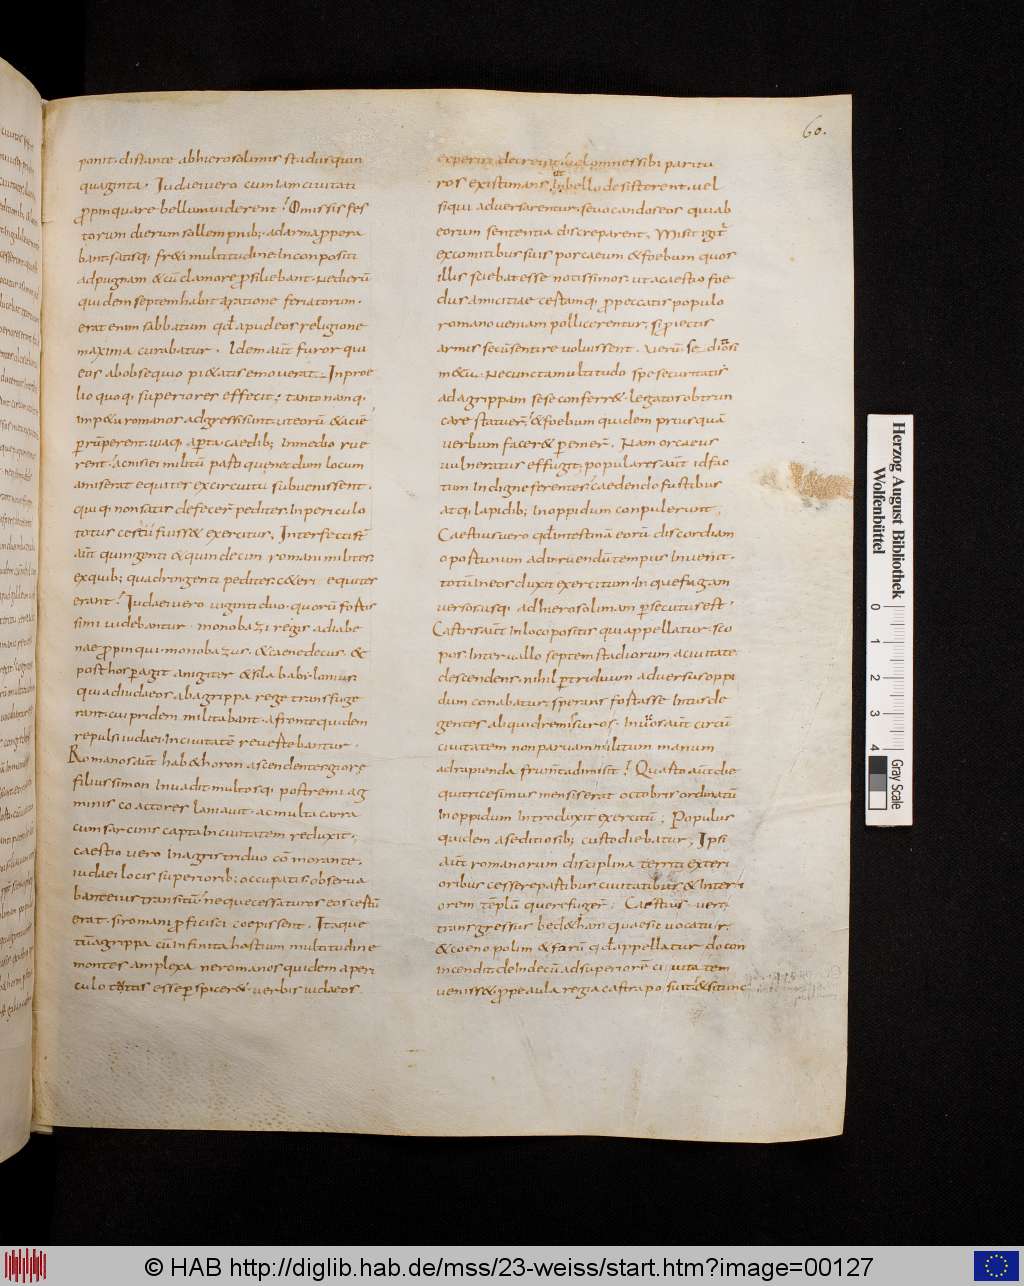 60.
ponit. distante abhierosolimis stadiis quin
quaginta. Iudaei vero cum iam civitati
ꝓpinquare bellum viderent. Omissis fes
torum dierum sollempnib; ad arma ꝓpera
bant. satisq; fr&i multitudine Inconpositi
adpugnam & cū clamore ꝓsiliebant. Nec
quidem septem habita ratione feriatorum.
erat enim sabbatum qđ apud eos religione
maxima curabatur. Idem aūt furor qui
eos ab obsequio pi&atis emoverat. Inproe
lio quoq; superiores effecit. tanto namq;
imp&u romanos adgressi sunt. ut eorū & aciē
ꝑrūperent. Inmedio rue
rent. ac nisi ei militū parti que necdum locum
amiserat equites ex circuitu subvenissent.
qui q; non satis defecerꝫ pedites In periculo
totus cestii fuiss& exercitus. Interfecti sꝫ
aūt quingenti & quindecim romani milites.
ex quib; quadringenti pedites. c&eri equites
erant. Iudaei vero viginti duo. quorū fortis
simi videbantur. monobazi regis adiabe
nae ꝓpinqui monobazus. & caenedeus. &
post hos peragit anigiter & sila babilonius
qui ad iudaeos ab agrippa rege transfuge
rant. cui pridem militabant. a fronte quidem
repulsi iudaei In civitatē revertebantur.
Romanos aūt hab&horon ascendentes giore
filius simon Invadit. multosq; postremi ag
minis coactores laniavit. ac multa carra
cum sarcinis capta In civitatem reduxit.
caestio vero In agris triduo cōmorante.
iudaei locis superiorib; occupatis. observa
bant eius transitū. neque cessaturos eos certū
erat. si romani ꝓficisci coepissent. Itaque
tū agrippa cū Infinita hostium multitudine
montes amplexa ne romanos quidem aperi
culo esse perspicer&. verbis iudaeos
experiri decrevit. vel omnes sibi paritu
ros existimans. ut bello desisterent. vel
siqui adversarentur. sevocandos eos qui ab
eorum sententia discreparent. Misit igit
ex comitibus suis porcaeum & foebum quos
illis sciebat esse notissimos. ut a caestio foe
dus amicitiae certamq; ꝓ peccatis populo
romano veniam pollicerentur. si ꝓiectis
armis secū sentire voluissent. Verū se
m&u. Ne cuncta multitudo spe securitatis
ad agrippam sese conferr&. legatos obtrun
care statuerꝫ. & foebum quidem priusquā
verbum facer& ꝑemerꝫ. Nam orcaeus
vulneratus effugit. populares aūt id fac
tum Indigne ferentes. caedendo fustibus
atq; lapidib; In oppidum conpulerunt.
Caestius vero qđ intestinā eorū discordiam
oportunum ad irruendū tempus Invenit.
totū In eos duxit exercitum. In quefugam
versos. usq; ad hierosolimam ꝑsecutus est.
Castris aūt In loco positis qui appellatur. sco
pos. Intervallo septem stadiorum a civitate
descendens. nihil ꝑ triduum adversus oppi
dum conabatur. sperans fortasse Intus de
gentes aliquid remissuros. In vicos aūt circū
civitatem non parvam militum manum
ad rapienda frumta dimisit. Quarto aūt die
qui tricesimus mensis erat octobris ordinatū
In oppidum Introduxit exercitū; Populus
quidem a seditiosib; custodiebatur. Ipsi
aūt romanorum disciplina territi exteri
oribus cessere partibus civitatibus & Interi
orem tēplū que refugerꝫ. Caestius vero
transgressus bed&han quae sic vocatur.
& coenopolim & forū qđ appellatur docon
incendit. deIndecū ad superiorē civitatem
veniss& ꝓpe aula regia castra posuit. & si tunc
Herzog August Bibliothek
Wolfenbüttel
0 1 2 3 4
Gray Scale
© HAB http://diglib.hab.de/mss/23-weiss/start.htm?image=00127